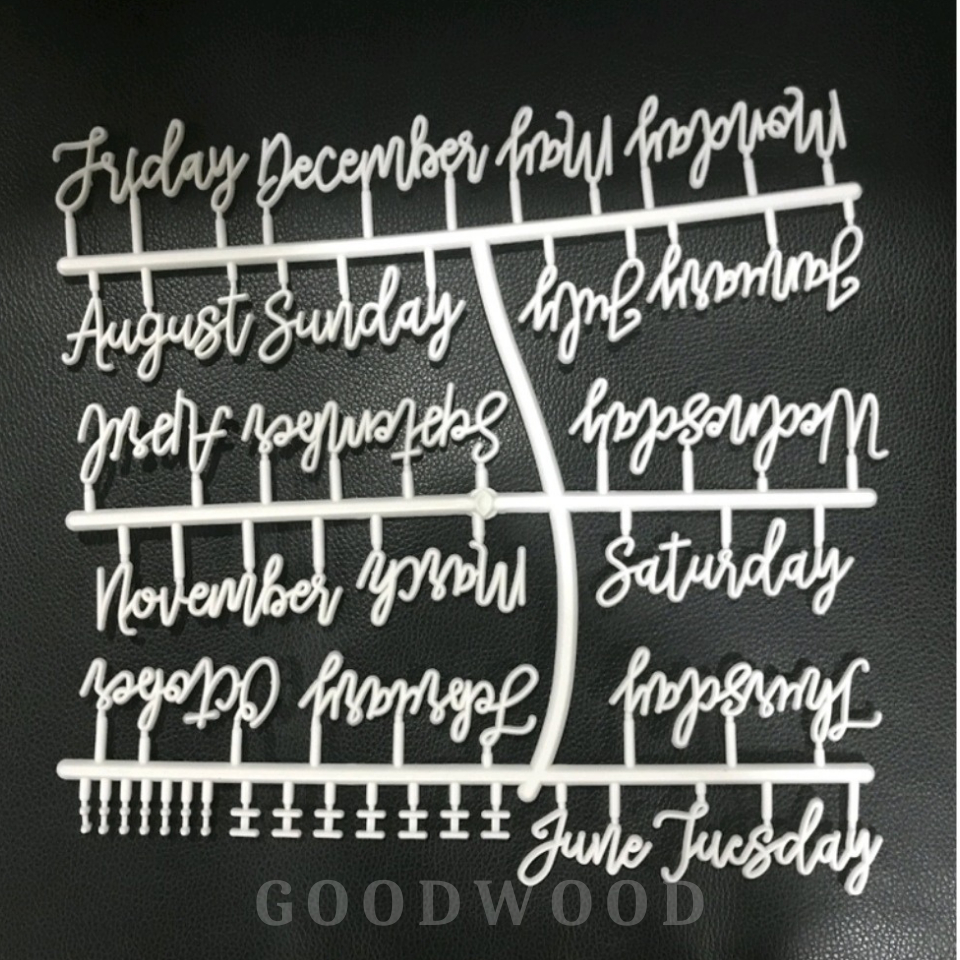 Friday December May Monday
August Sunday July January
April September Wednesday
November March Saturday
October February Thursday
June Tuesday
GOODWOOD